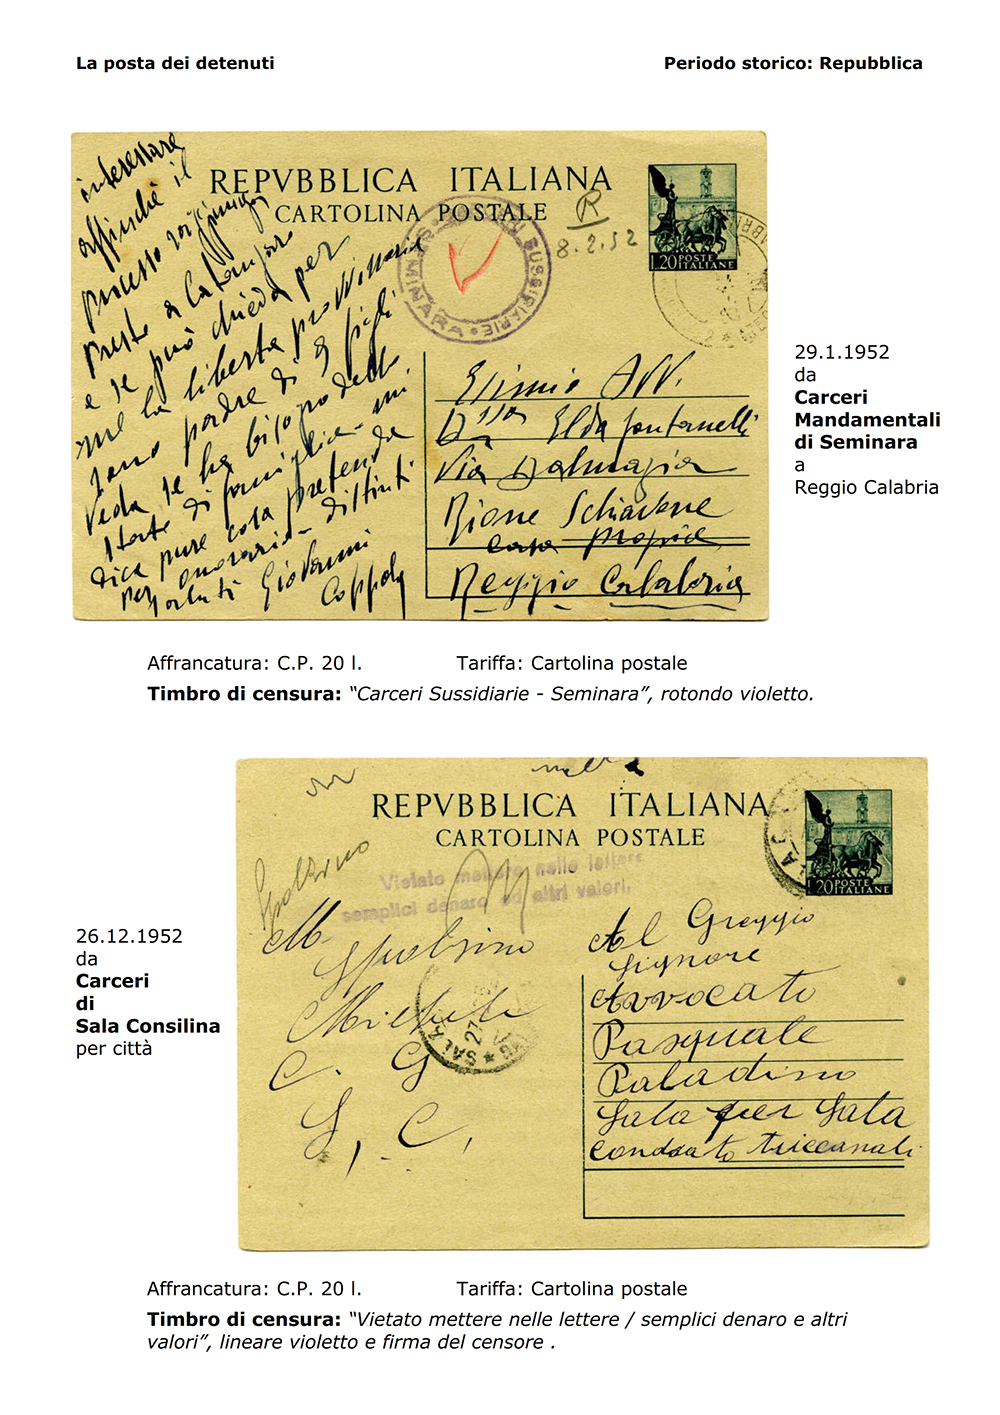 La posta dei detenuti
Periodo storico: Repubblica
interessare
affinché il
processo
presto a Catanzaro
e se può chieda per
me la libertà provvisoria
sono padre di 9 figli
Veda se ha bisogno dello
stato di famiglia - mi
dica pure cosa pretende
per onorario - distinti
saluti Giovanni
Coppola
REPVBBLICA ITALIANA
CARTOLINA POSTALE
R
8.2.52
CARCERI SUSSIDIARIE
SEMINARA
L.20 POSTE
ITALIANE
Esimio Avv.
D'ssa Elda Fontanelli
Via Dalmazia
Rione Schiavone
casa propria
Reggio Calabria
29.1.1952
da
Carceri
Mandamentali
di Seminara
a
Reggio Calabria
Affrancatura: C.P. 20 l.
Tariffa: Cartolina postale
Timbro di censura: “Carceri Sussidiarie - Seminara”, rotondo violetto.
REPVBBLICA ITALIANA
CARTOLINA POSTALE
L.20 POSTE
ITALIANE
Vietato mettere nelle lettere
semplici denaro ed altri valori.
Spolzino
M.
Spolzino
Michele
C. G
S. C.
SALA
27
Al Greggio
Signore
Avvocato
Pasquale
Paladino
Sala per Sala
26.12.1952
da
Carceri
di
Sala Consilina
per città
Affrancatura: C.P. 20 l.
Tariffa: Cartolina postale
Timbro di censura: “Vietato mettere nelle lettere / semplici denaro e altri
valori”, lineare violetto e firma del censore .